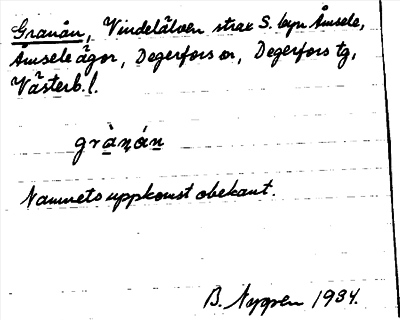 Granån, Vindelälven strax S. byn Åmsele,
Åmsele ägor, Degerfors sn, Degerfors tg,
Västerb. l.
grànán
Namnets uppkomst obekant.
B. Nygren 1934.